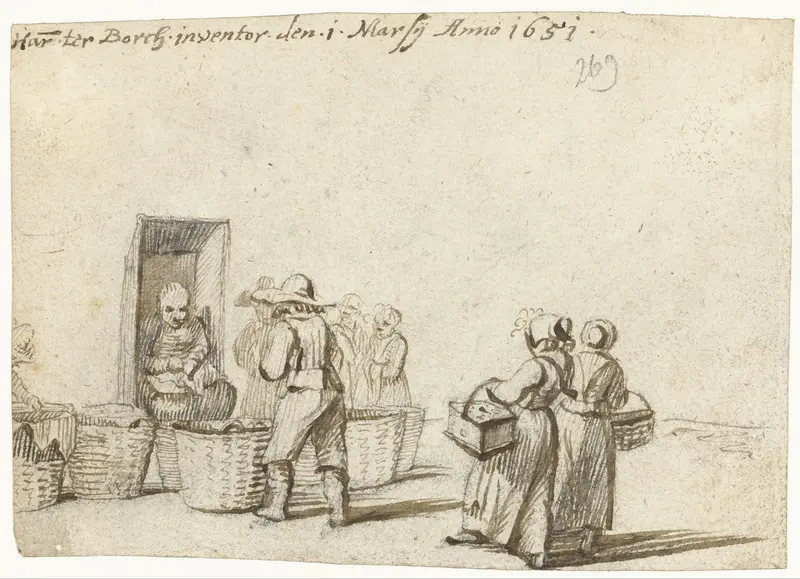 Har̅ · ter Borch · inventor · den · 1 · Marsÿ Anno 1651 ·
269